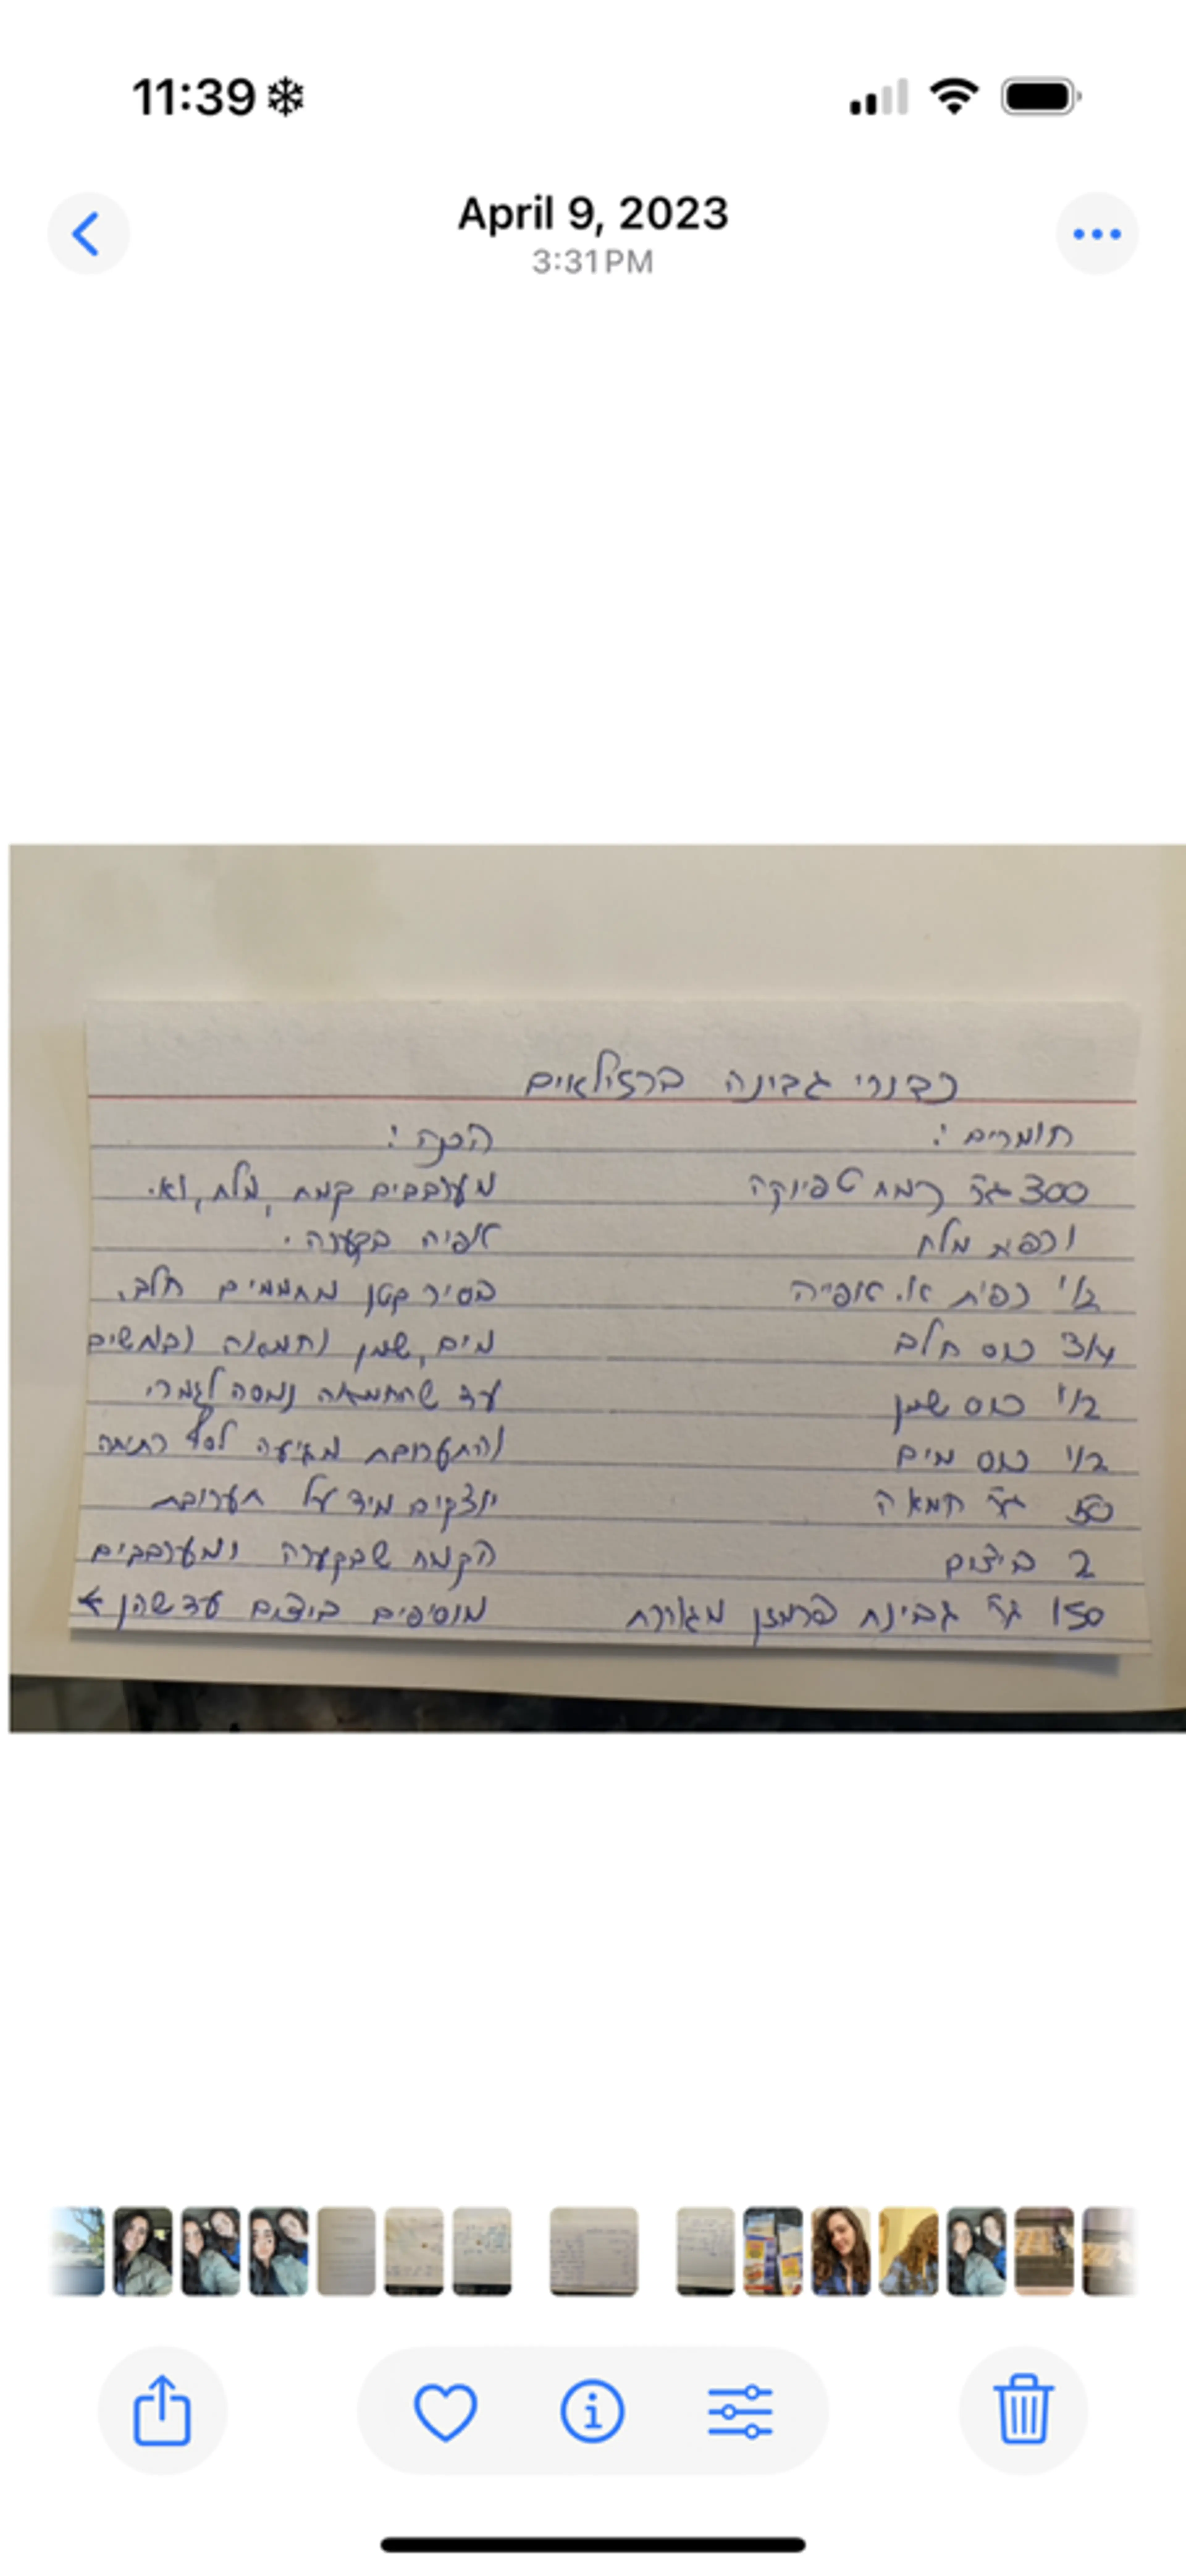 11:39
April 9, 2023
3:31 PM
כדורי גבינה ברזילאים
חומרים:
300 גר' קמח טפיוקה
1 כפית מלח
1/2 כפית א. אפייה
3/4 כוס חלב
1/2 כוס שמן
1/2 כוס מים
50 גר' חמאה
2 ביצים
150 גר' גבינת פרמזן מגוררת
הכנה:
מערבבים קמח, מלח, וא.
אפיה בקערה.
בסיר קטן מחממים חלב,
מים, שמן וחמאה ובוחשים
עד שהחמאה נמסה לגמרי,
והתערובת מגיעה לסף רתיחה
יוצקים מיד על תערובת
הקמח שבקערה ומערבבים
מוסיפים ביצים עד שהן ←